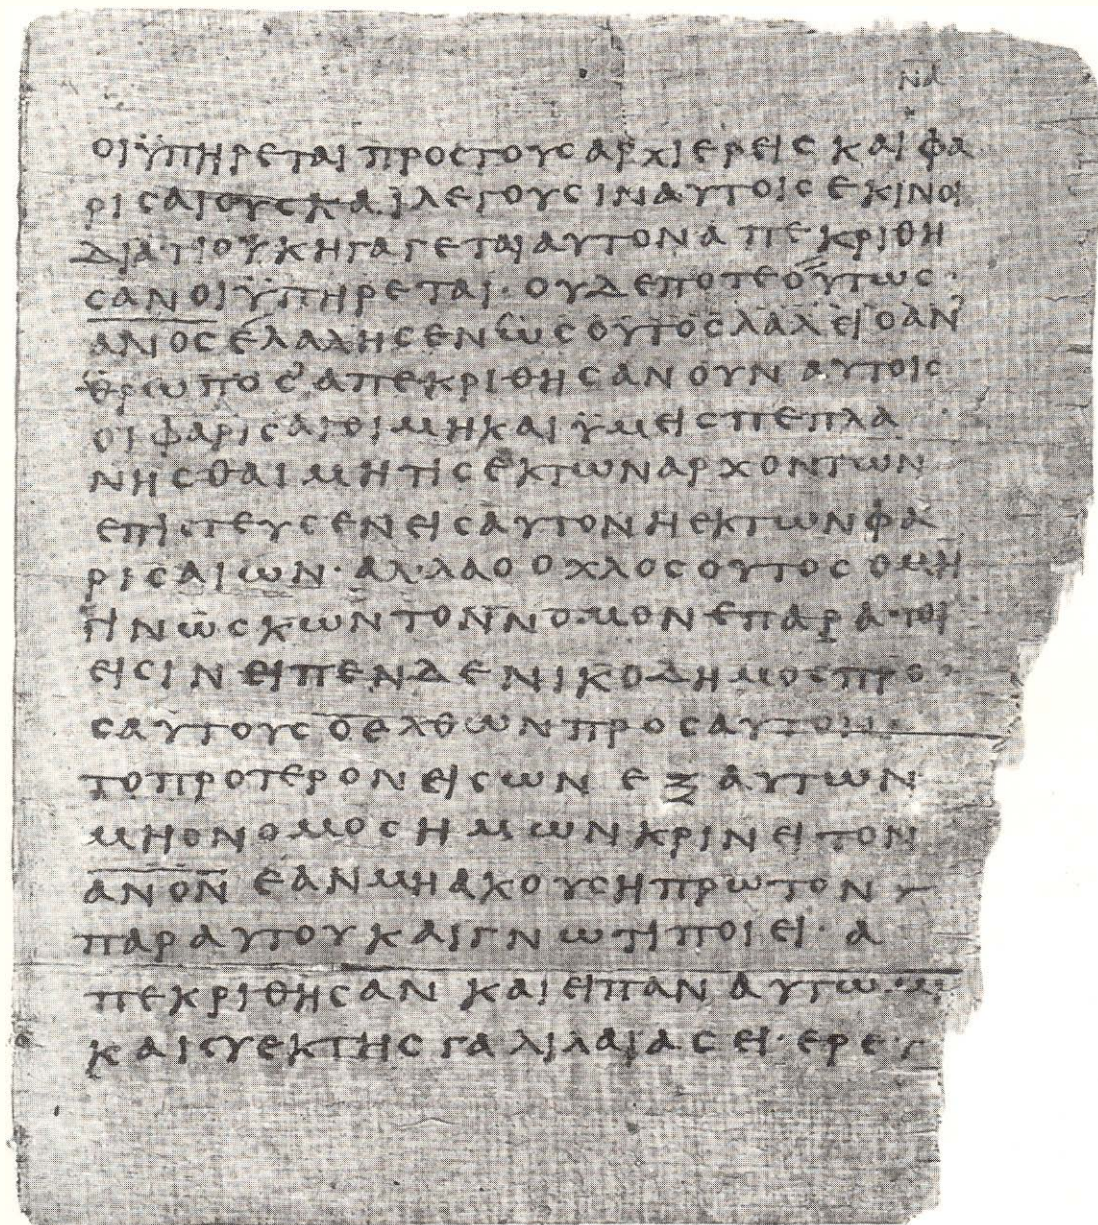 ΝΔ
ΟΙ ΫΠΗΡΕΤΑΙ ΠΡΟΣ ΤΟΥΣ ΑΡΧΙΕΡΕΙΣ ΚΑΙ ΦΑ
ΡΙΣΑΙΟΥΣ ΚΑΙ ΛΕΓΟΥΣΙΝ ΑΥΤΟΙΣ ΕΚΙΝΟΙ
ΔΙΑ ΤΙ ΟΥΚ ΗΓΑΓΕΤΑΙ ΑΥΤΟΝ ΑΠΕΚΡΙΘΗ
ΣΑΝ ΟΙ ΫΠΗΡΕΤΑΙ· ΟΥΔΕΠΟΤΕ ΟΥΤΩΣ·
ΑΝΟΣ ΕΛΑΛΗΣΕΝ ΩΣ ΟΥΤΟΣ ΛΑΛΕΙ Ο ΑΝ
ΘΡΩΠΟΣ ΑΠΕΚΡΙΘΗΣΑΝ ΟΥΝ ΑΥΤΟΙΣ
ΟΙ ΦΑΡΙΣΑΙΟΙ ΜΗ ΚΑΙ ΫΜΕΙΣ ΠΕΠΛΑ
ΝΗΣΘΑΙ ΜΗ ΤΙΣ ΕΚ ΤΩΝ ΑΡΧΟΝΤΩΝ
ΕΠΙΣΤΕΥΣΕΝ ΕΙΣ ΑΥΤΟΝ Η ΕΚ ΤΩΝ ΦΑ
ΡΙΣΑΙΩΝ· ΑΛΛΑ Ο ΟΧΛΟΣ ΟΥΤΟΣ Ο ΜΗ
ΓΙΝΩΣΚΩΝ ΤΟΝ ΝΟΜΟΝ ΕΠΑΡΑΤΟΙ
ΕΙΣΙΝ ΕΙΠΕΝ ΔΕ ΝΙΚΟΔΗΜΟΣ ΠΡΟ
Σ ΑΥΤΟΥΣ Ο ΕΛΘΩΝ ΠΡΟΣ ΑΥΤΟΝ
ΤΟ ΠΡΟΤΕΡΟΝ ΕΙΣ ΩΝ ΕΞ ΑΥΤΩΝ
ΜΗ Ο ΝΟΜΟΣ ΗΜΩΝ ΚΡΙΝΕΙ ΤΟΝ
ΑΝΟΝ ΕΑΝ ΜΗ ΑΚΟΥΣΗ ΠΡΩΤΟΝ
ΠΑΡ ΑΥΤΟΥ ΚΑΙ ΓΝΩ ΤΙ ΠΟΙΕΙ· Α
ΠΕΚΡΙΘΗΣΑΝ ΚΑΙ ΕΙΠΑΝ ΑΥΤΩ· Μ
ΚΑΙ ΣΥ ΕΚ ΤΗΣ ΓΑΛΙΛΑΙΑΣ ΕΙ· ΕΡΕ